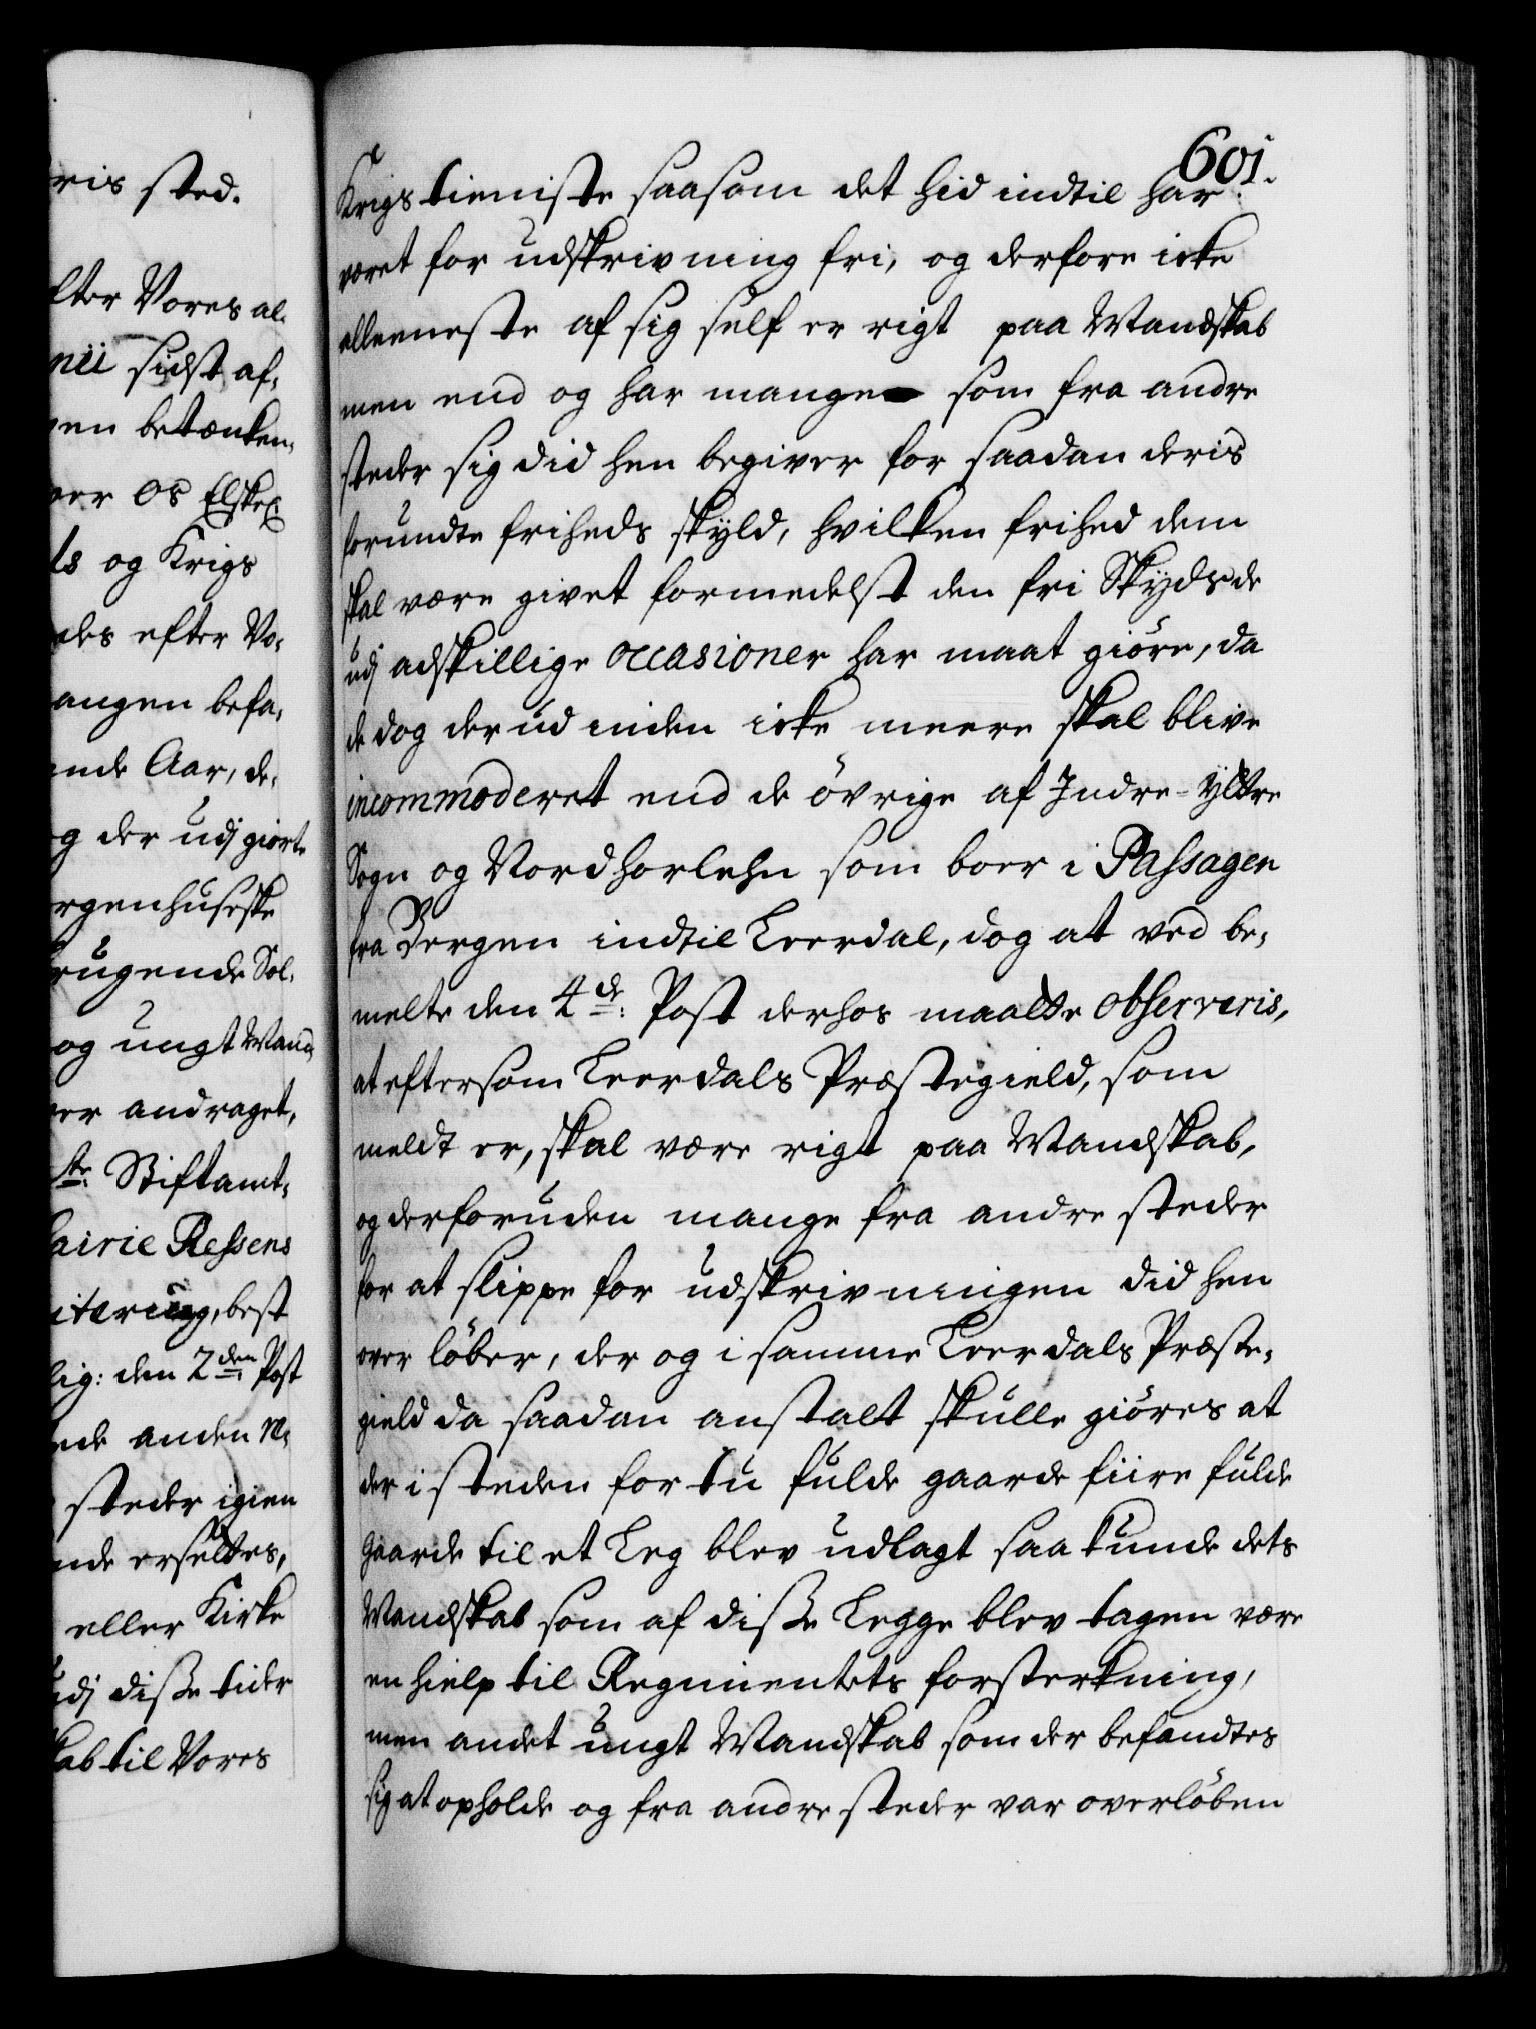 ris sted.
fter Vores al-
nii sidst af-
en betænken-
er os Elskel:
ts og Krigs
des efter Vo-
angen befa-
nde Aar, de-
g der udj giorte
rgenhusiske
rugende Sol-
og ungt Mand-
er andraget,
ste Stiftamt-
airie Ressens
itering, best
lig: den 2den Post
de anden M-
steder igien
nde ersættes,
eller Kirke
udj disse tider
kab til Vores
601.
Krigs tieniste saasom det hid indtil har
været for udskrivning fri, og derfore icke
alleeneste af sig self er rigt paa Mandskab
men end og har mange som fra andre
steder sig did hen begiver for saadan deris
forundte friheds skyld, hvilken frihed dem
skal være givet formedelst den fri Skyds de
udj adskillige occasioner har maat giøre, da
de dog der ud inden icke meere skal blive
incommoderet end de øvrige af Indre- Yttre
Sogn og Nordhorlehn som boer i Passagen
fra Bergen indtil Leerdal, dog at ved be-
melte den 4de: Post derhos maatte observeris,
at eftersom Leerdals Præstegield, som
meldt er, skal være rigt paa Mandskab,
og derforuden mange fra andre steder
for at slippe for udskrivningen did hen
over løber, der og i samme Leerdals Præste-
gield da saadan anstalt skulle giøres at
der i steden for tu fulde gaarde fiire fulde
gaarde til et Leg blev udlagt saa kunde dets
Mandskab som af disse Legge blev tagen være
en hielp til Regimentets forsterkning,
men andet ungt Mandskab som der befandtes
sig at opholde og fra andre steder var overløben